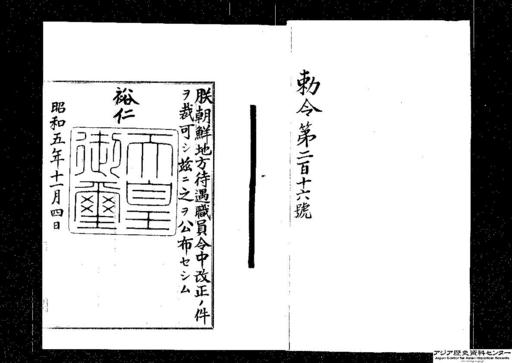 勅令第二百十六號
朕朝鮮地方待遇職員令中改正ノ件
ヲ裁可シ茲ニ之ヲ公布セシム
裕仁
天皇
御璽
昭和五年十一月四日
アジア歴史資料センター
Japan Center for Asian Historical Records